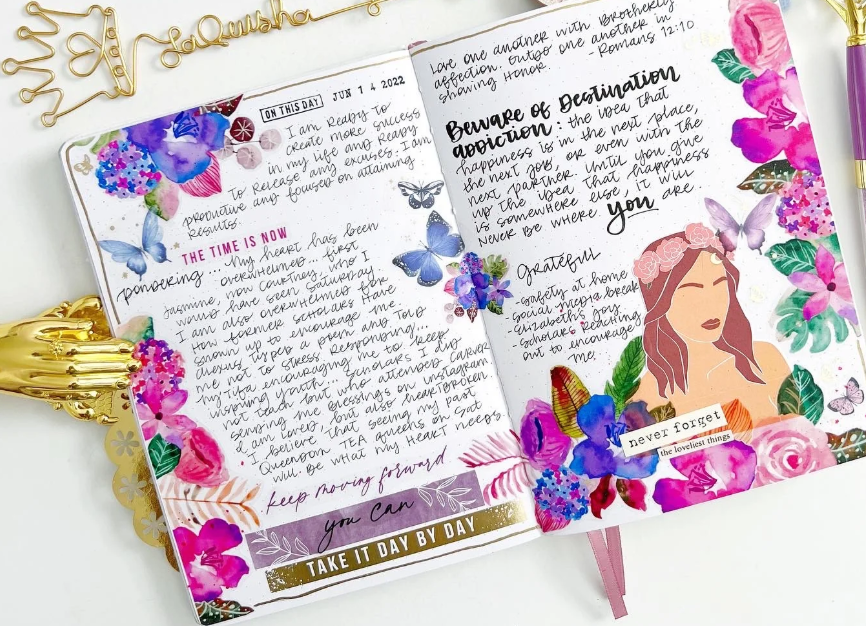 LaQuisha
ON THIS DAY JUN 14 2022
I am Ready to
create more success
in my life and Ready
to Release any excuses. I am
productive and focused on attaining
Results.
THE TIME IS NOW
pondering... My heart has been
overwhelmed... first
Jasmine, now Courtney, who I
would have seen Saturday.
I am also overwhelmed for
How former scholars Have
shown up to encourage me.
Alexus typed a poem and Told
me not to stress. Responding...
encouraging me to keep
inspiring youth... Scholars I did
not teach but who attended Carver
sending me blessings on Instagram.
I am loved, but also heartbroken.
I believe that seeing my past
Queendom TEA Queens on Sat
will be what my Heart needs.
keep moving forward
you can
TAKE IT DAY BY DAY
Love one another with Brotherly
affection. Outdo one another in
showing Honor. - Romans 12:10
Beware of Destination
addiction: the idea that
happiness is in the next place,
the next job, or even with the
next partner. Until you give
up the idea that happiness
is somewhere else, it will
Never be where you are.
Grateful
-Safety at home
-Social media break
-Elizabeth's joy
-Scholars reaching
out to encourage
me.
never forget
the loveliest things